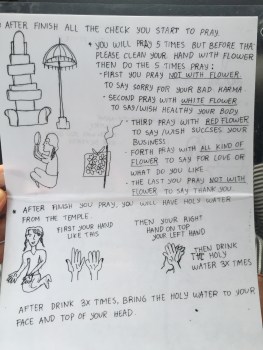 • AFTER FINISH ALL THE CHECK YOU START TO PRAY.
• YOU WILL PRAY 5 TIMES BUT BEFORE THAT
PLEASE CLEAN YOUR HAND WITH FLOWER
THEN DO THE 5 TIMES PRAY:
- FIRST YOU PRAY NOT WITH FLOWER
TO SAY SORRY FOR YOUR BAD KARMA
- SECOND PRAY WITH WHITE FLOWER
TO SAY/WISH HEALTHY YOUR BODY
- THIRD PRAY WITH RED FLOWER
TO SAY/WISH SUCSSES YOUR
BUSINESS
- FORTH PRAY WITH ALL KIND OF
FLOWER TO SAY FOR LOVE OR
WHAT DO YOU LIKE
- THE LAST YOU PRAY NOT WITH
FLOWER TO SAY THANK YOU
• AFTER FINISH YOU PRAY, YOU WILL HAVE HOLY WATER
FROM THE TEMPLE
FIRST YOUR HAND
LIKE THIS
THEN YOUR RIGHT
HAND ON TOP
YOUR LEFT HAND
THEN DRINK
THE HOLY
WATER 3X TIMES
AFTER DRINK 3X TIMES, BRING THE HOLY WATER TO YOUR
FACE AND TOP OF YOUR HEAD.